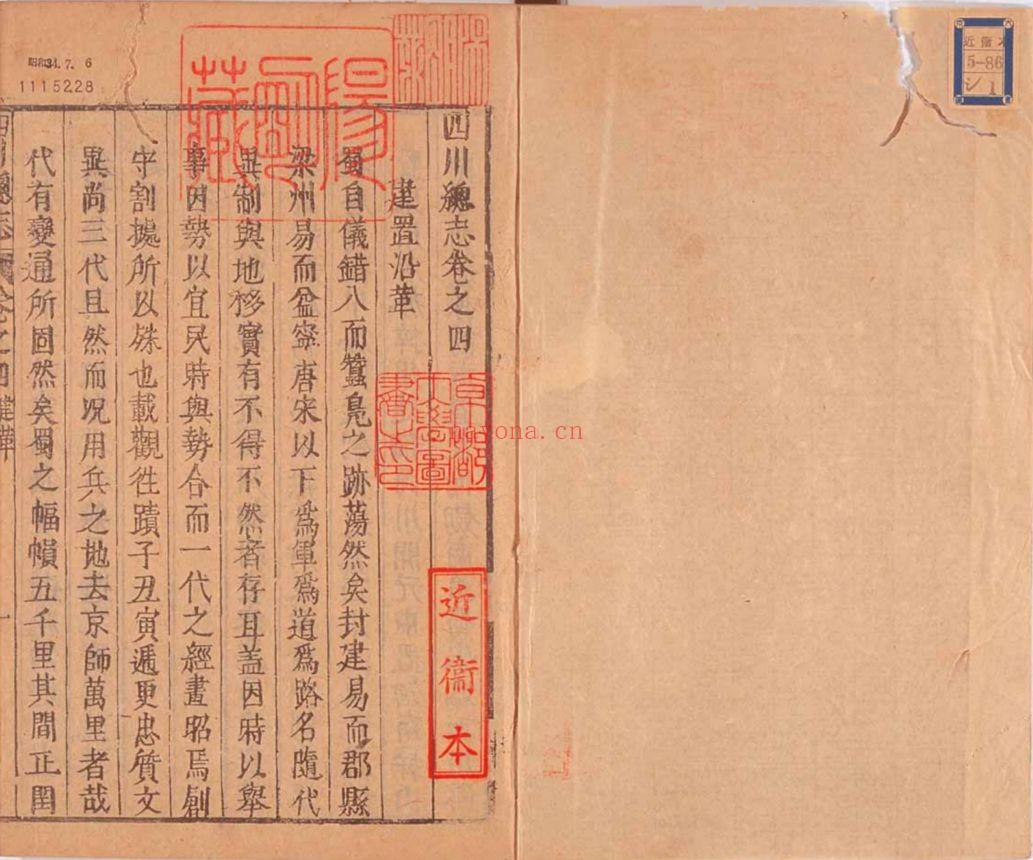 近衛本
5-86
シ 1
昭和34.7.6
1115228
四川總志卷之四
建置沿革
蜀自儀錯八而蠶鳧之跡蕩然矣封建易而郡縣
梁州易而益寧唐宋以下爲軍爲道爲路名隨代
異制與地移實有不得不然者存耳盖因時以舉
事因勢以宜民時與勢合而一代之經畫昭焉創
守割據所以殊也載觀徃蹟子丑寅遞更忠質文
異尚三代且然而况用兵之地去京師萬里者哉
代有變通所固然矣蜀之幅幀五千里其間正閏
陽明藏
近衞本
nayona.cn
四川總志 卷之四 建革
一